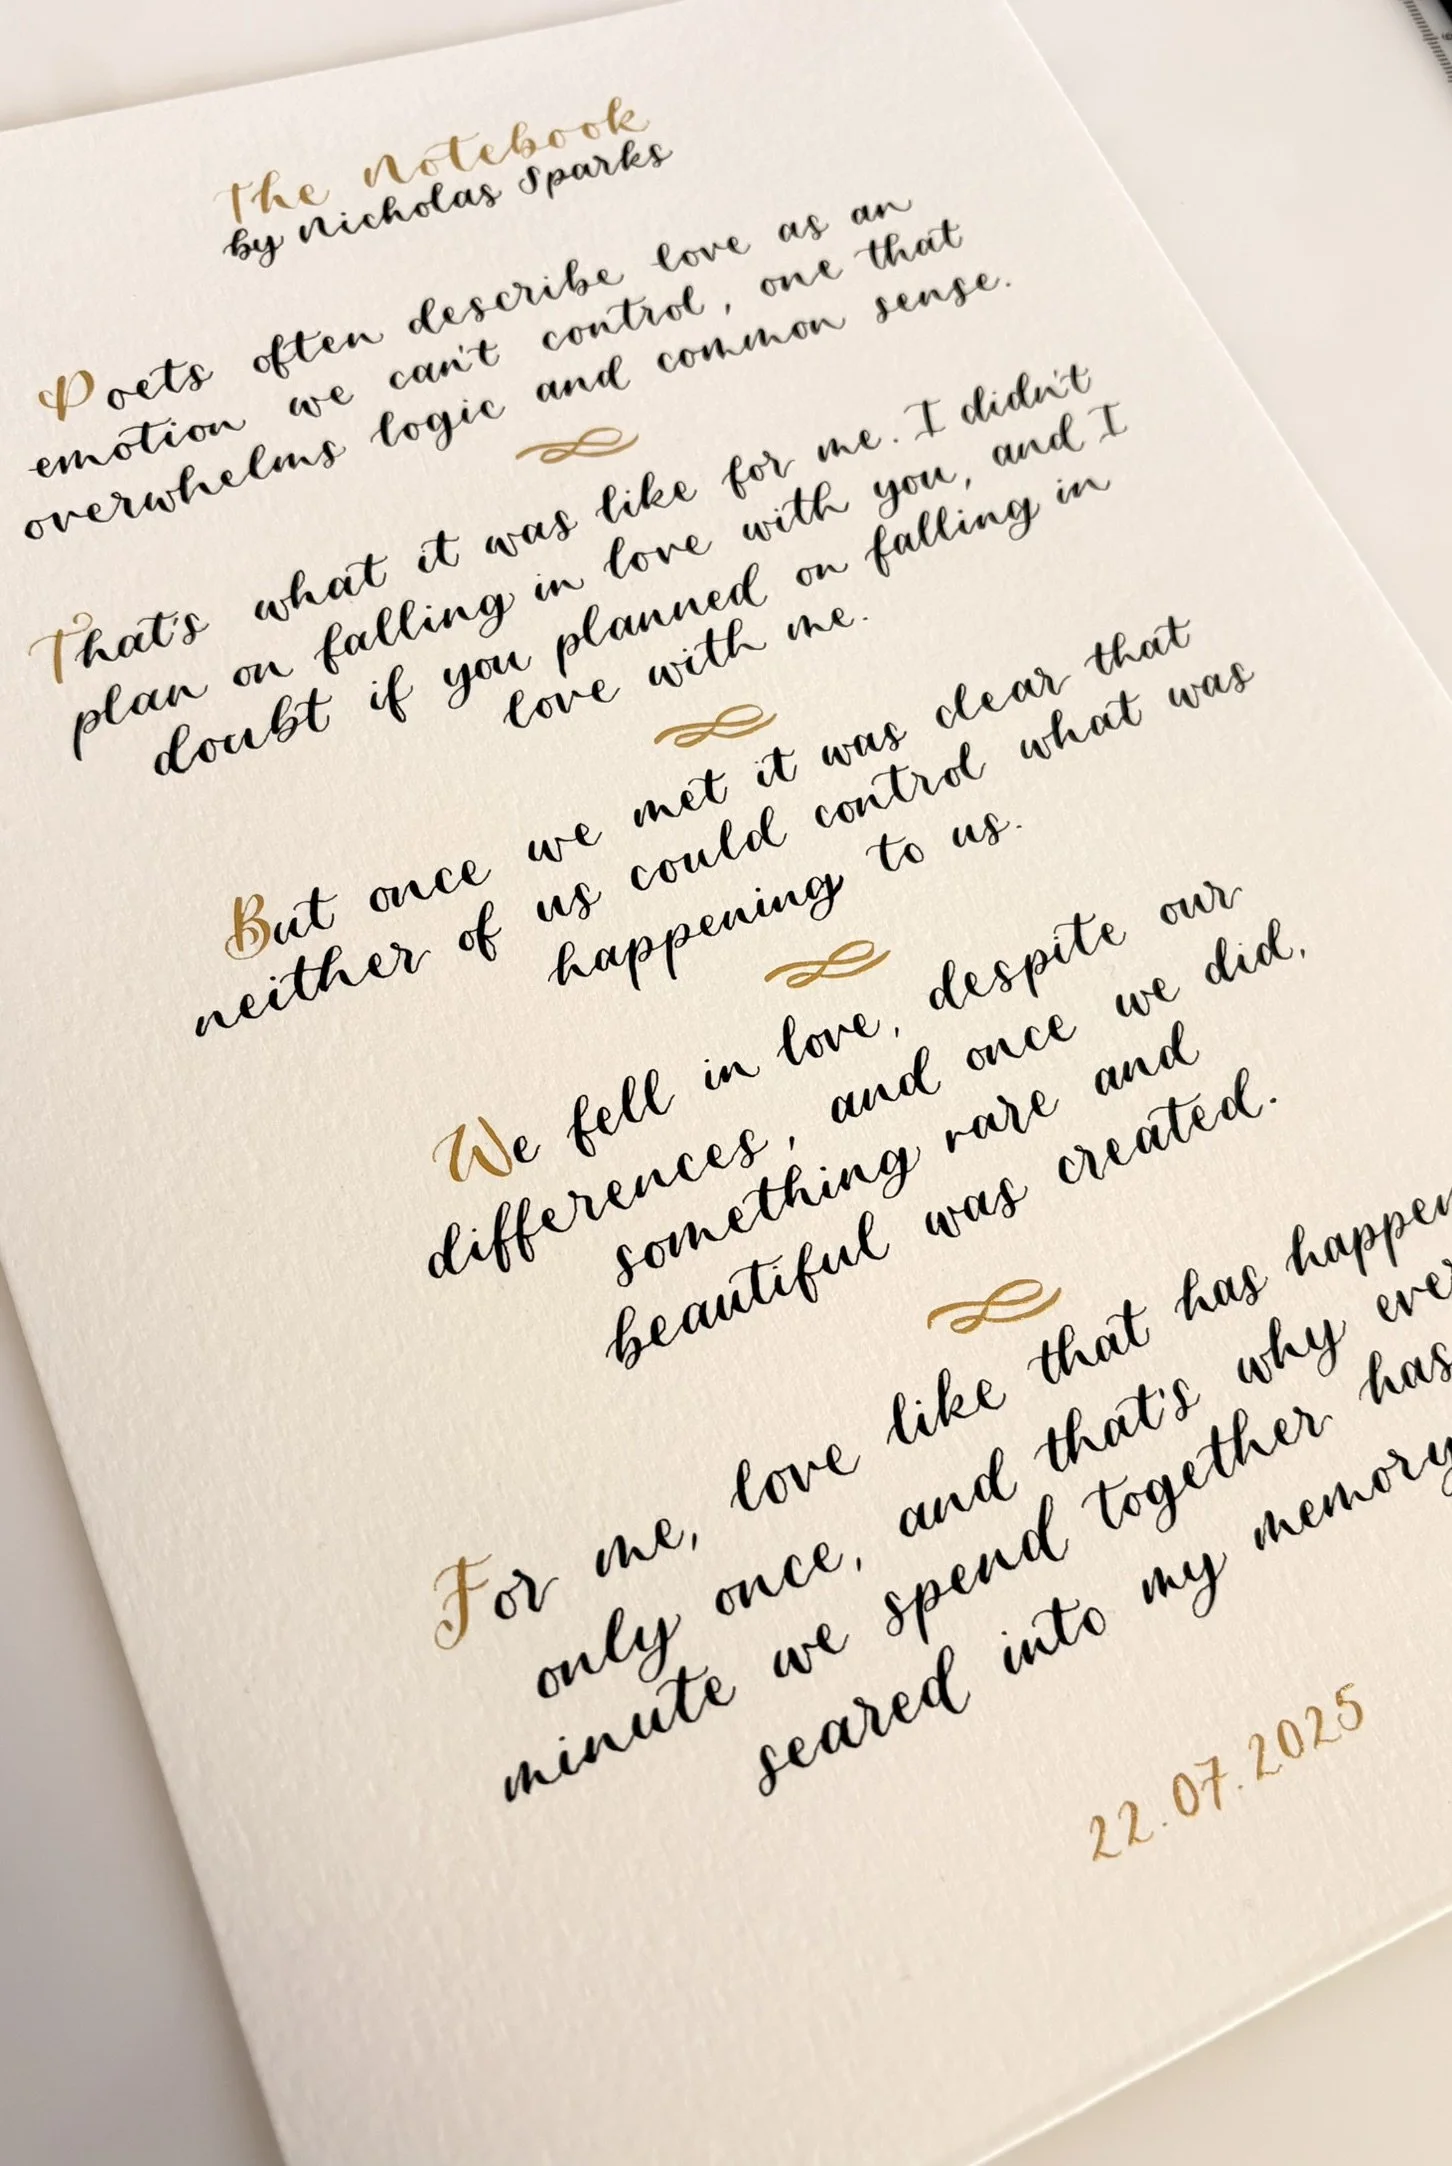 The Notebook
by Nicholas Sparks
Poets often describe love as an
emotion we can't control, one that
overwhelms logic and common sense.
That's what it was like for me. I didn't
plan on falling in love with you, and I
doubt if you planned on falling in
love with me.
But once we met it was clear that
neither of us could control what was
happening to us.
We fell in love, despite our
differences, and once we did,
something rare and
beautiful was created.
For me, love like that has happen
only once, and that's why eve
minute we spend together has
seared into my memory
22.07.2025